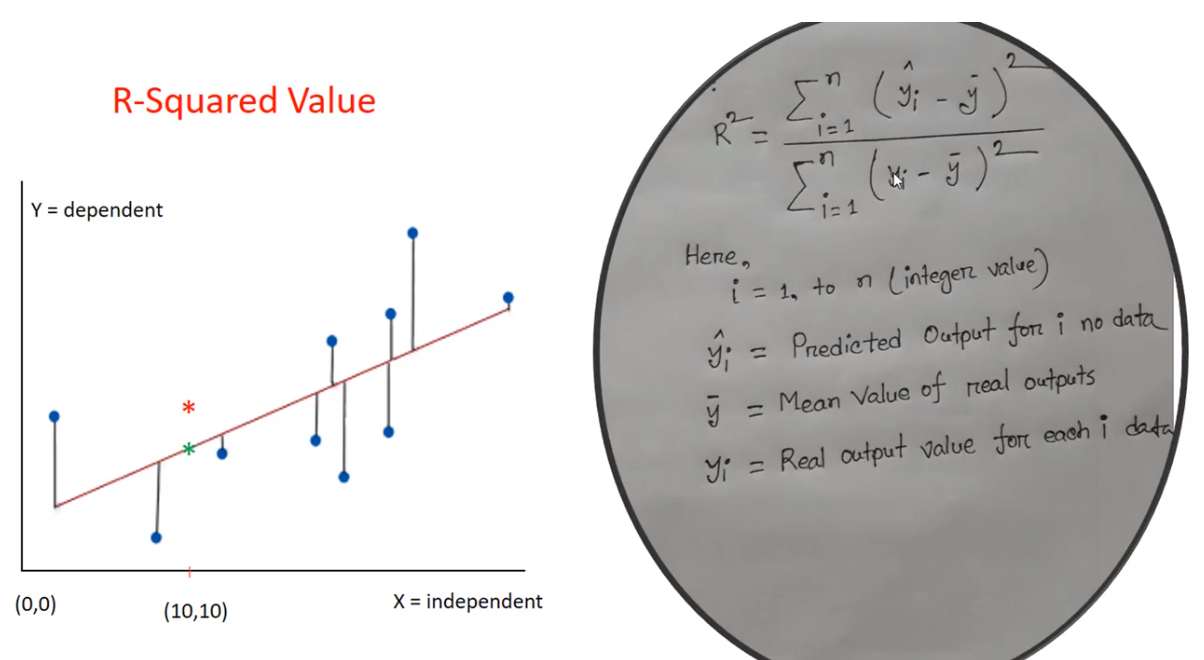 R-Squared Value
Y = dependent
(0,0)
(10,10)
X = independent
R² = Σⁿᵢ₌₁ (ŷᵢ - ȳ)² / Σⁿᵢ₌₁ (yᵢ - ȳ)²
Here,
i = 1, to n (integer value)
ŷᵢ = Predicted Output for i no data
ȳ = Mean Value of real outputs
yᵢ = Real output value for each i data